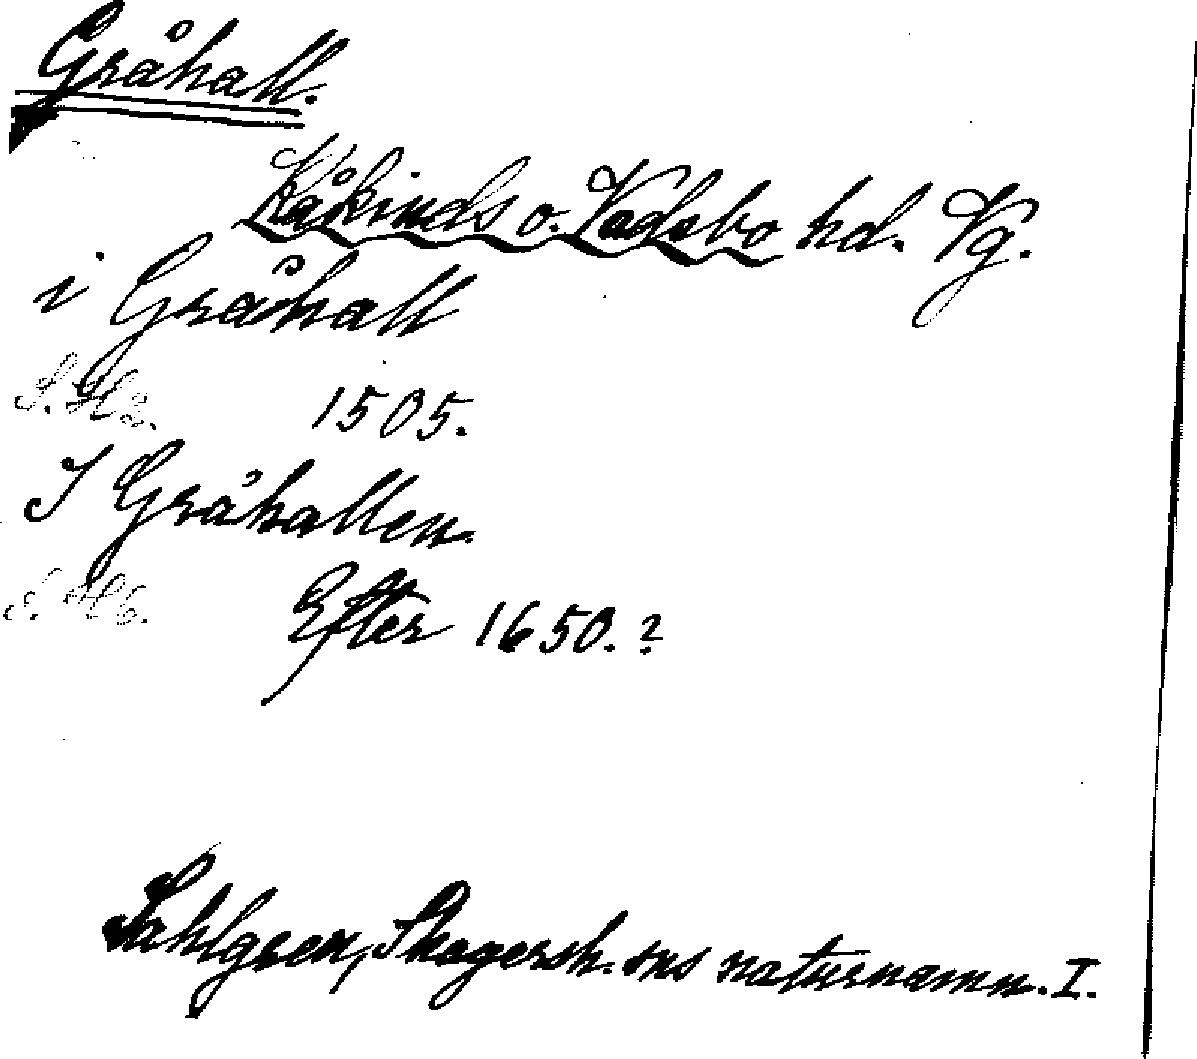 Gråhall.
Kåkinds o. Vadsbo hd. Vg.
i Gråhall
S. H 2. 1505.
I Gråhallen.
S. H 6. Efter 1650.?
Sahlgren, Skagersh. sns naturnamn. I.